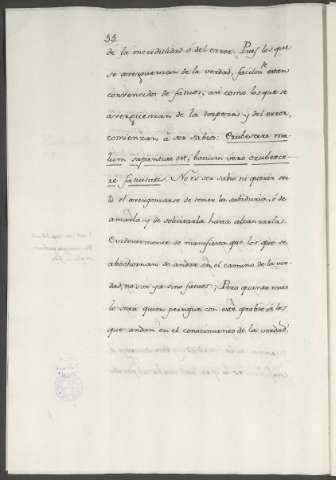 33
de la incredulidad o del error. Pues los que
se averguenzan de la verdad, facilm.te estan
convencidos de fatuos; asi como los que se
averguenzan de la torpeza y del error,
comienzan à ser sabios. Erubescere ma-
lum sapientiae est, bonum vero erubesce-
re fatuitatis. No es ser sabio ni querer ser-
lo el avergonzarse de tener la sabiduria, ò de
amarla, y de solicitarla hasta alcanzarla.
Evidentemente se manifiesta que los que se
abochornan de andar en el camino de la ver-
dad, no son ya sino fatuos; Pero quando mas
lo será quien persigue con este oprobio à los
que andan en el conocimiento de la verdad.